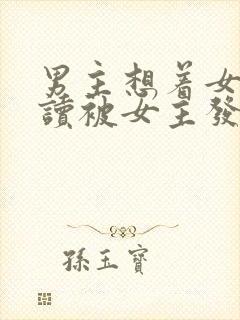 男主想着女
讀被女主發
孫玉寶